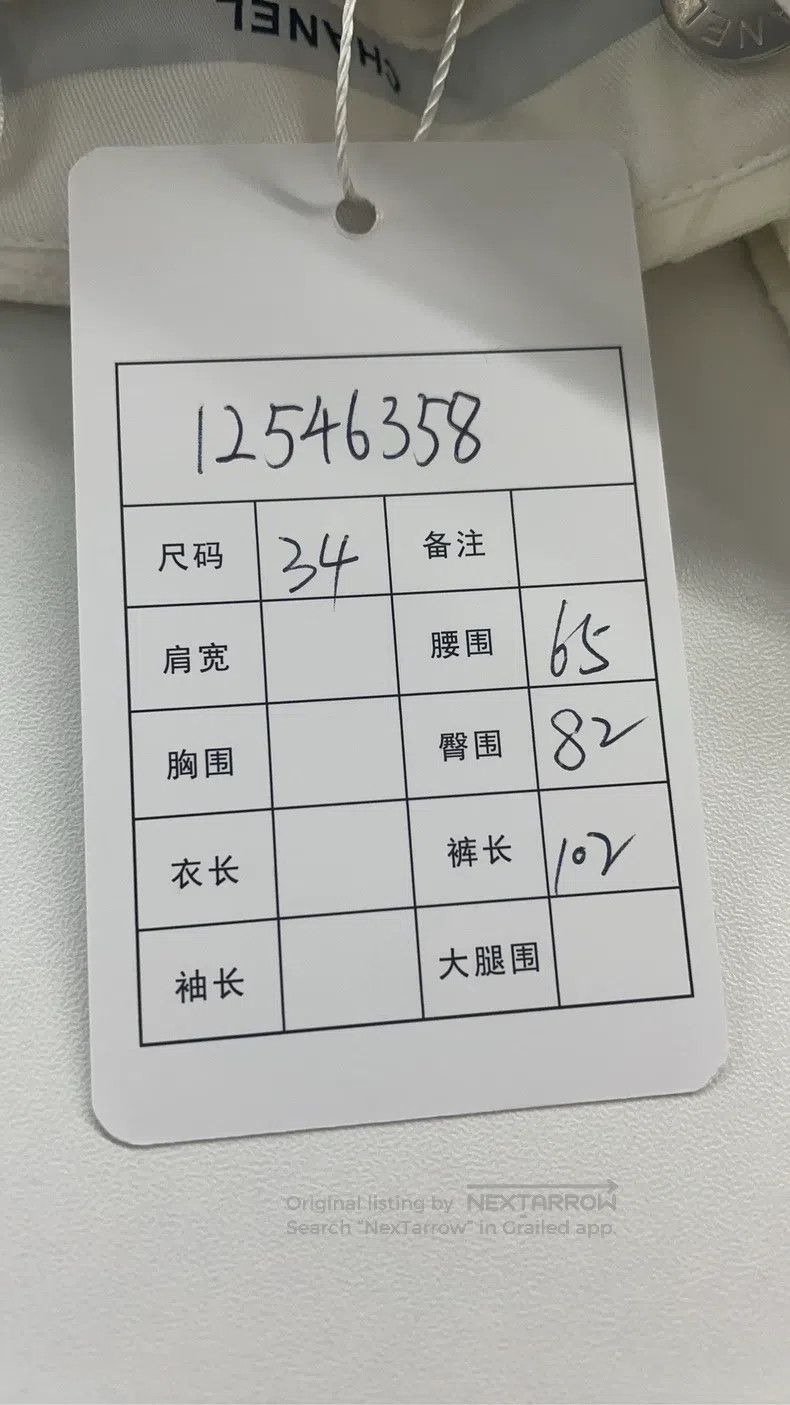 CHANEL
NEL
12546358
尺码 34 备注
肩宽 腰围 65
胸围 臀围 82
衣长 裤长 102
袖长 大腿围
Original listing by NEXTARROW
Search "NexTarrow" in Grailed app.